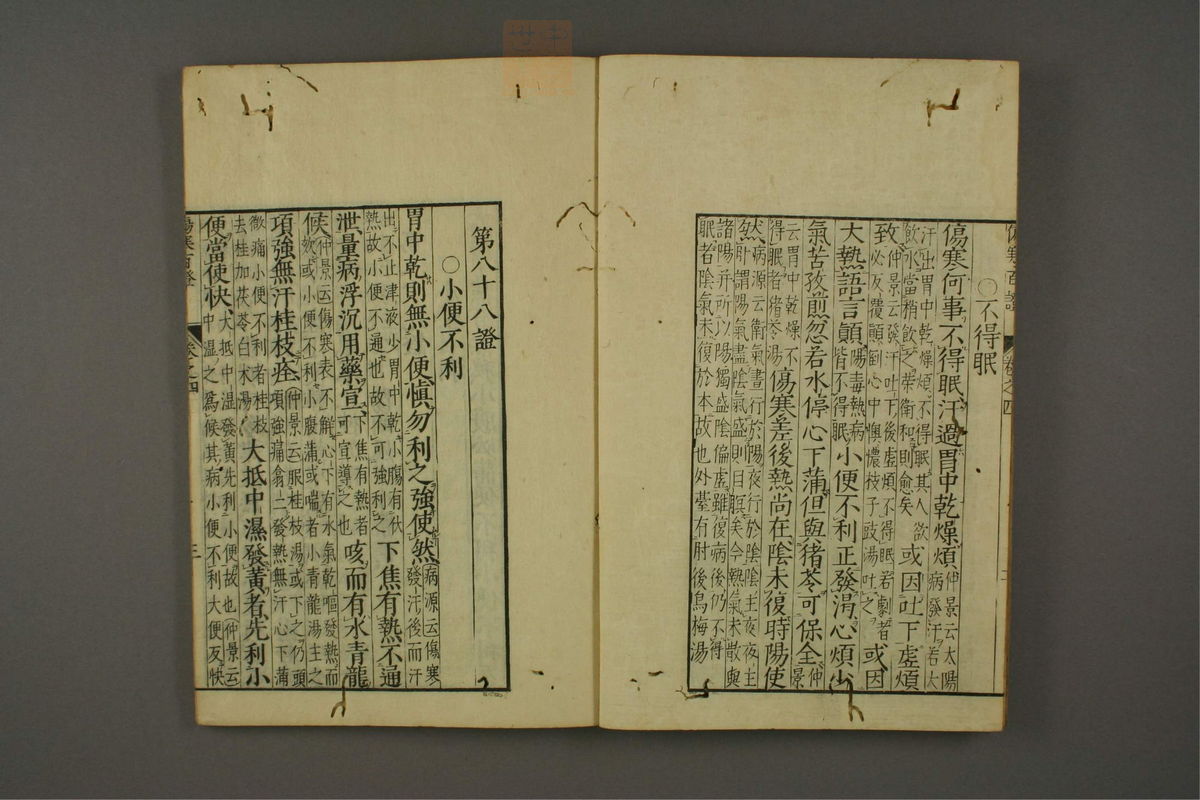 ○不得眠
傷寒何事不得眠汗過胃中乾燥煩仲景云太陽病發汗若大
汗出胃中乾燥煩不得眠其人欲飲水當稍飲之榮衛和則愈矣或因吐下虛煩
致仲景云發汗吐下後虛煩不得眠若劇者必反覆顛倒心中懊憹梔子豉湯吐之或因
大熱語言顛陽毒熱病皆不得眠小便不利正發渴心煩少
氣苦孜煎忽若水停心下滿但與猪苓可保全仲景
云胃中乾燥不得眠者猪苓湯傷寒差後熱尚在陰未復時陽使
然病源云衛氣晝行於陽夜行於陰陰主夜夜主臥謂陽氣盡陰氣盛則目瞑矣今熱氣未散與
諸陽并所以陽獨盛陰偏虛雖復病後仍不得眠者陰氣未復於本故也外臺有肘後烏梅湯
傷寒百證
卷之四
第八十八證
○小便不利
胃中乾則無小便慎勿利之強使然病源云傷寒發汗後而汗
出不止津液少胃中乾小腸有伏熱故小便不通也故不可強利之下焦有熱不通
泄量病浮沉用藥宣下焦有熱者可宣導之也咳而有水青龍
候仲景云傷寒表不解心下有水氣乾嘔發熱而欬或小便不利小腹滿或喘者小青龍湯主之
項強無汗桂枝痊仲景云服桂枝湯或下之仍頭項強痛翕翕發熱無汗心下滿
微痛小便不利者桂枝去桂加茯苓白朮湯大抵中濕發黃者先利小
便當使快大抵中濕發黃先利小便故也仲景云中濕之為候其病小便不利大便反快
傷寒百證
卷之四
三